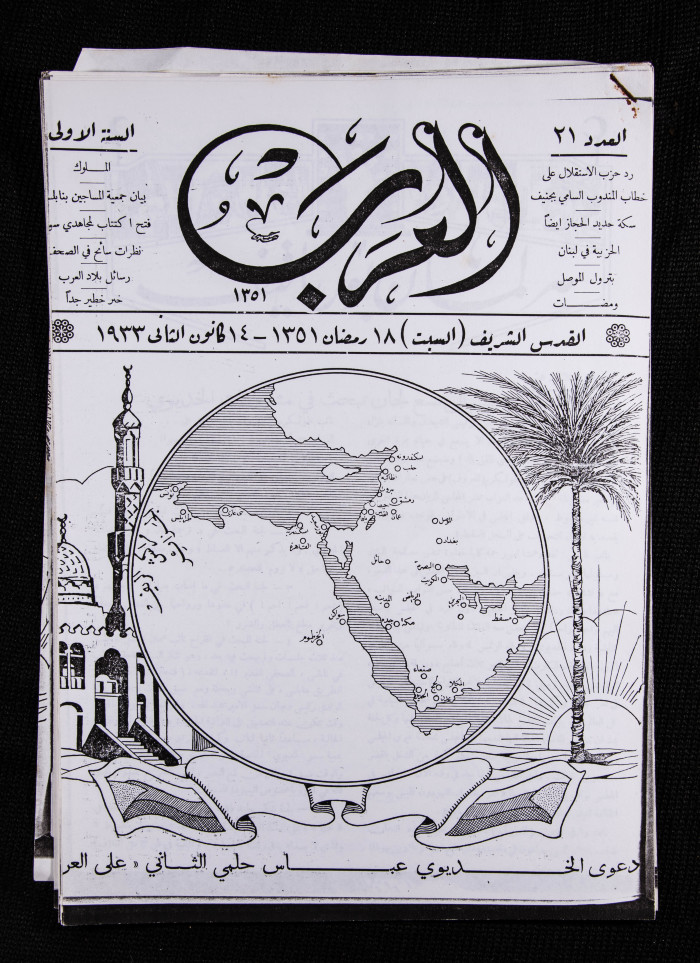 العدد ٢١
رد حزب الاستقلال على
خطاب المندوب السامي بجنيف
سكة حديد الحجاز ايضاً
الحزبية في لبنان
بترول الموصل
ومضات
العرب
١٣٥١
السنة الاولى
الملوك
بيان جمعية المساجين بنابلس
فتح اكتتاب لمجاهدي سو
نظرات سائح في الصحف
رسائل بلاد العرب
خبر خطير جداً
القدس الشريف (السبت) ١٨ رمضان ١٣٥١ – ١٤ كانون الثاني ١٩٣٣
سكندرونه
حلب
بيروت
دمشق
حيفا
القدس
عمان
تونس
طرابلس
بني غازي
اسكندرية
القاهرة
الموصل
بغداد
حائل
البصرة
الكويت
المدينة
الرياض
البحرين
مسقط
سواكن
جده
مكة
الخرطوم
صنعاء
المكلا
لحج
عدن
دعوى الخديوي عباس حلمي الثاني « على العر